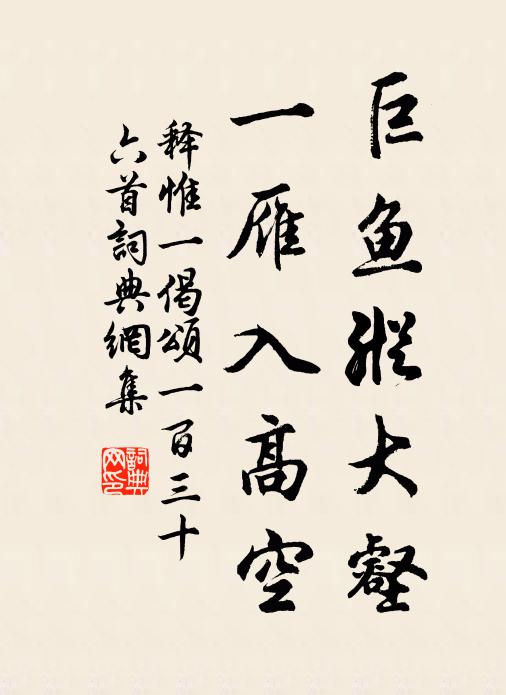 巨鱼縱大壑
一雁入高空
释惟一偈頌一百三十
六首詞典網集
詞典网印